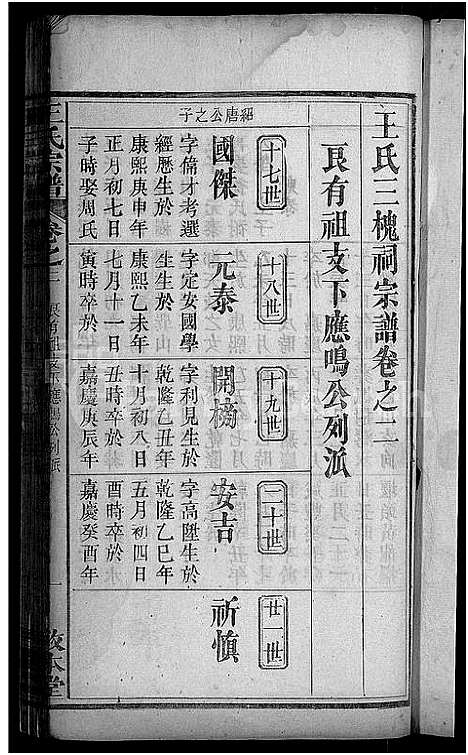 王氏三槐祠宗譜卷之二
艮有祖支下應鳴公列派
十七世
十八世
十九世
二十世
廿一世
紹唐公之子
國傑
字倫才考選
經歷生於
康熙庚申年
正月初七日
子時娶周氏
元泰
字定安國學
生生於
康熙乙未年
七月十一日
寅時卒於
開
字利見生於
乾隆乙丑年
十月初八日
丑時卒於
嘉慶庚辰年
安吉
字高陞生於
乾隆乙巳年
五月初四日
酉時卒於
嘉慶癸酉年
祈慎
王氏宗譜
卷之二
艮有祖支下應鳴公列派
一
敦本堂